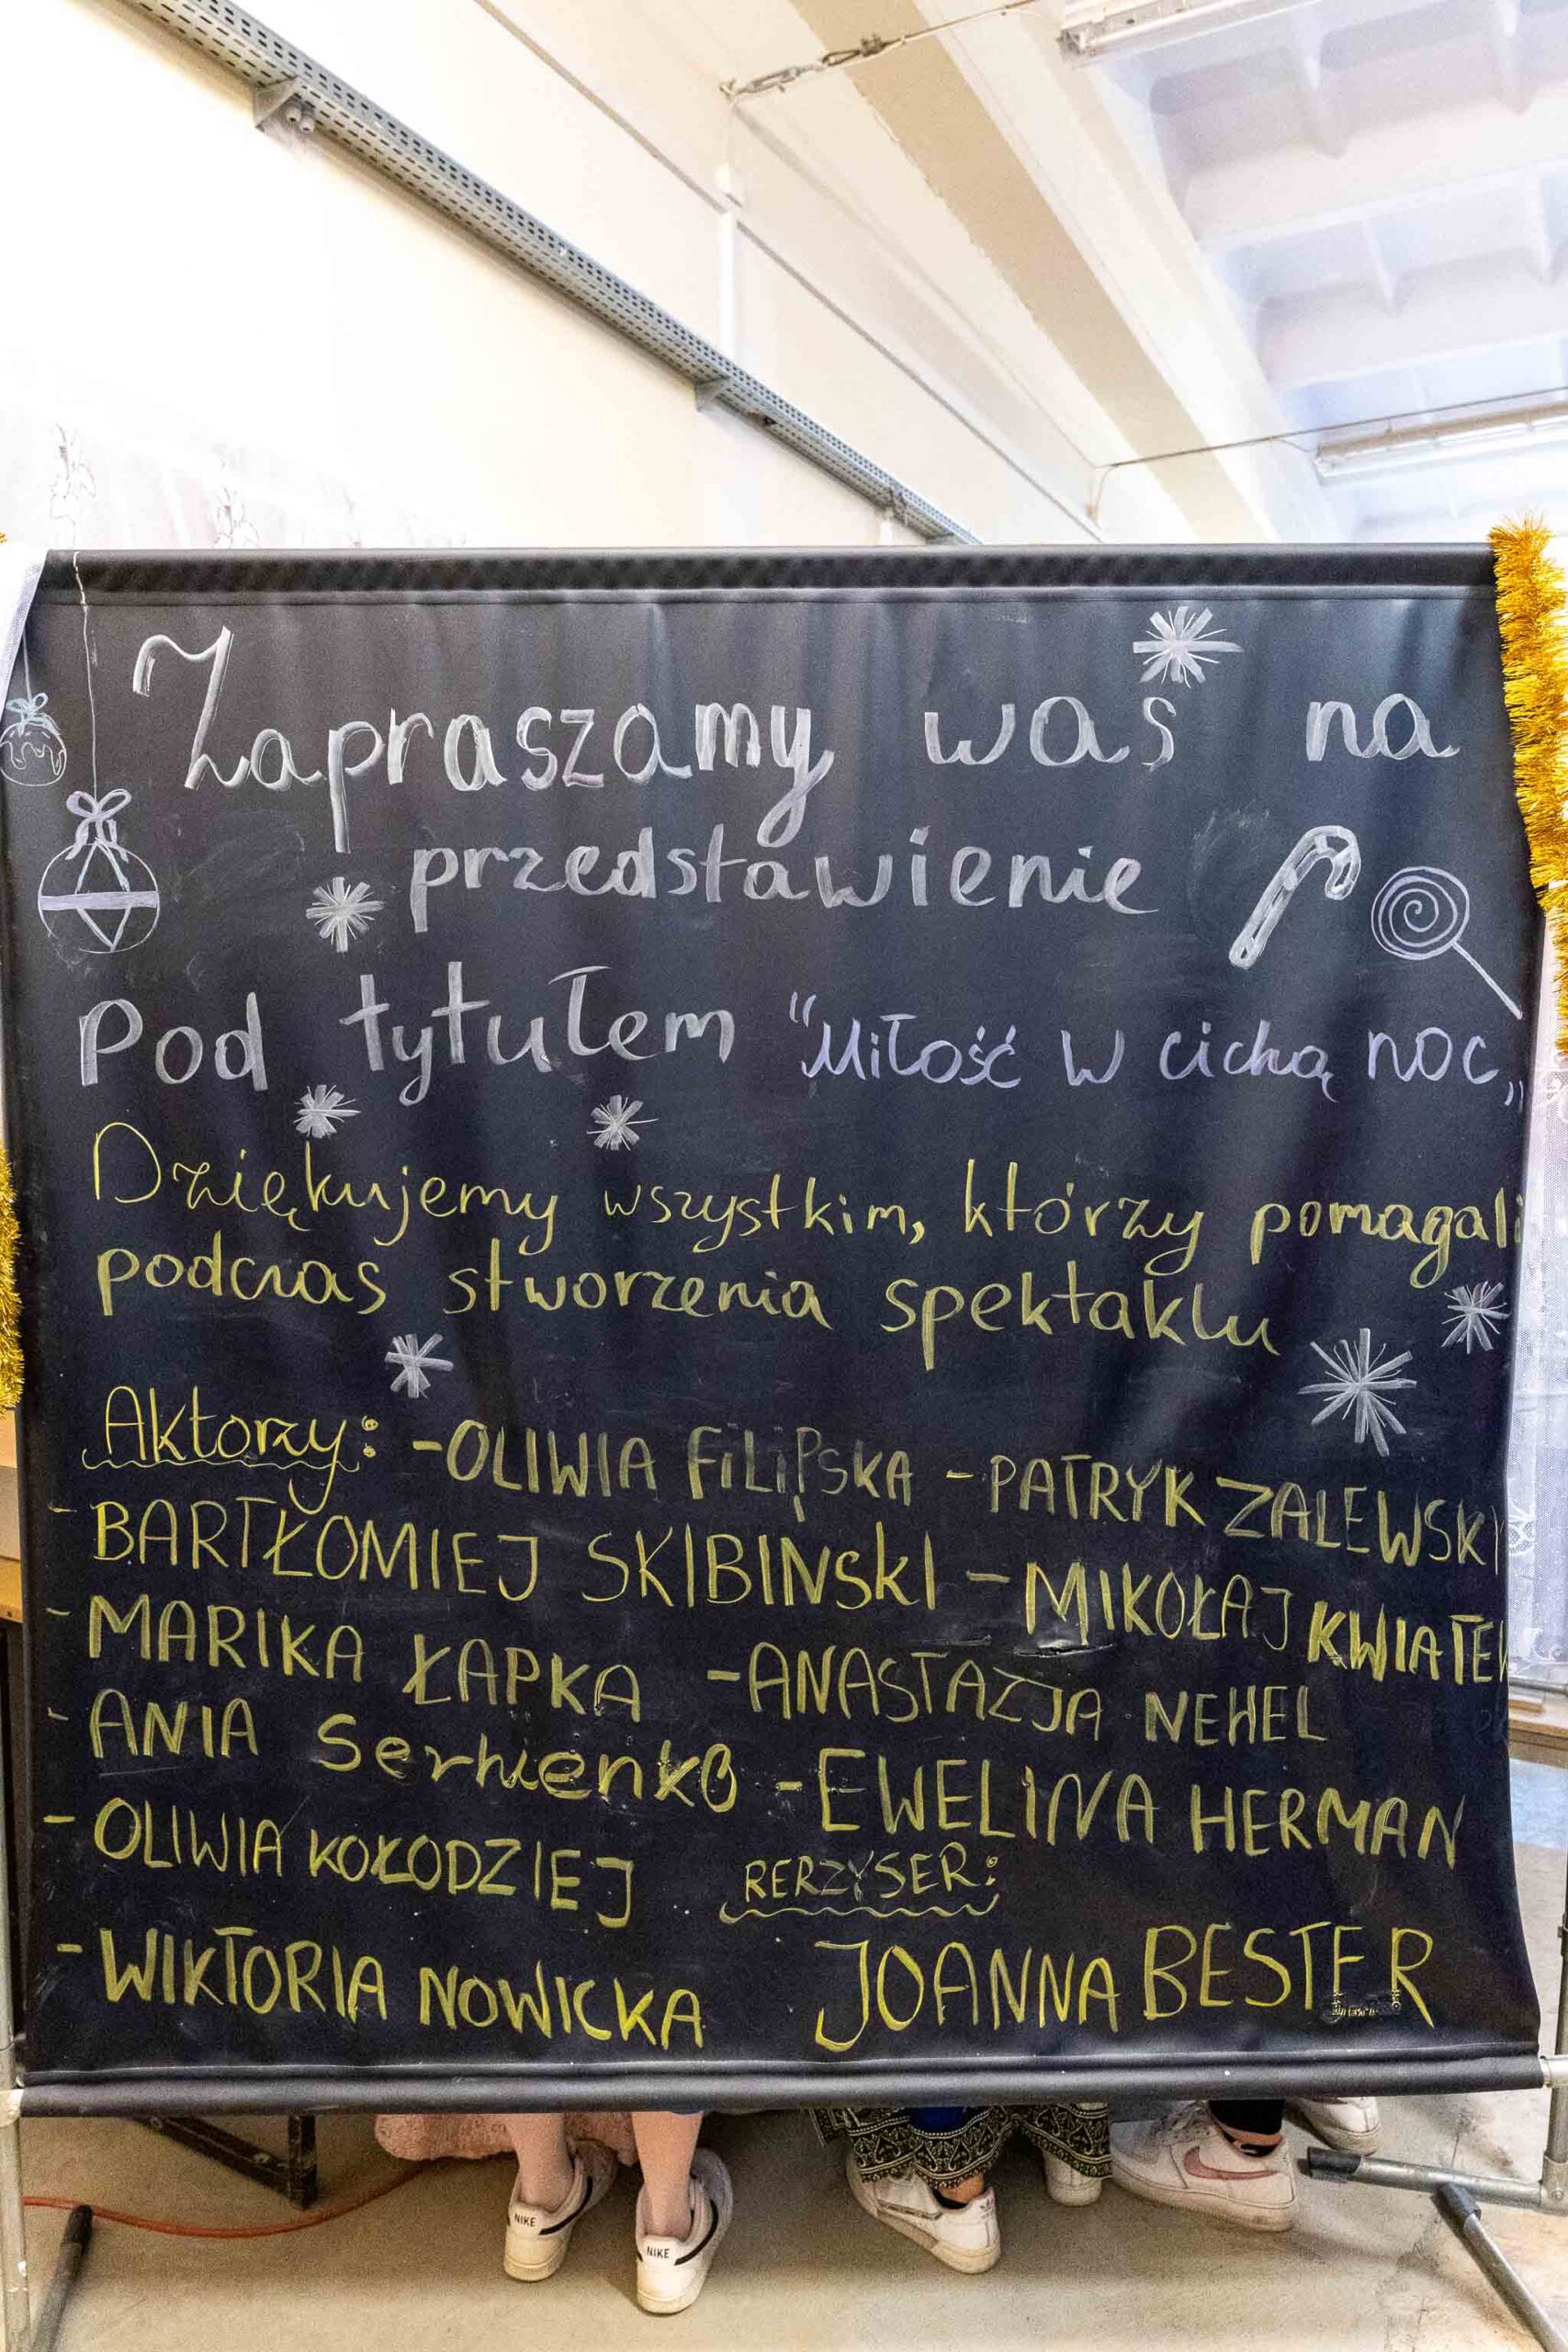 Zapraszamy was na
przedstawienie
Pod tytułem "Miłość w cichą noc„
Dziękujemy wszystkim, którzy pomagali
podczas stworzenia spektaklu
Aktorzy: -OLIWIA FiLiPSKA - PATRYK ZALEWSKI
- BARTŁOMIEJ SKIBINSkI - MIKOŁAJ KWIATEK
- MARIKA ŁAPKA - ANASTAZJA NEHEL
- ANIA - EWELiNA HERMAN
- OLIWIA KOŁODZIEJ RERZYSER:
- WIKTORIA NOWICKA JOANNA BESTER
NIKE
NIKE